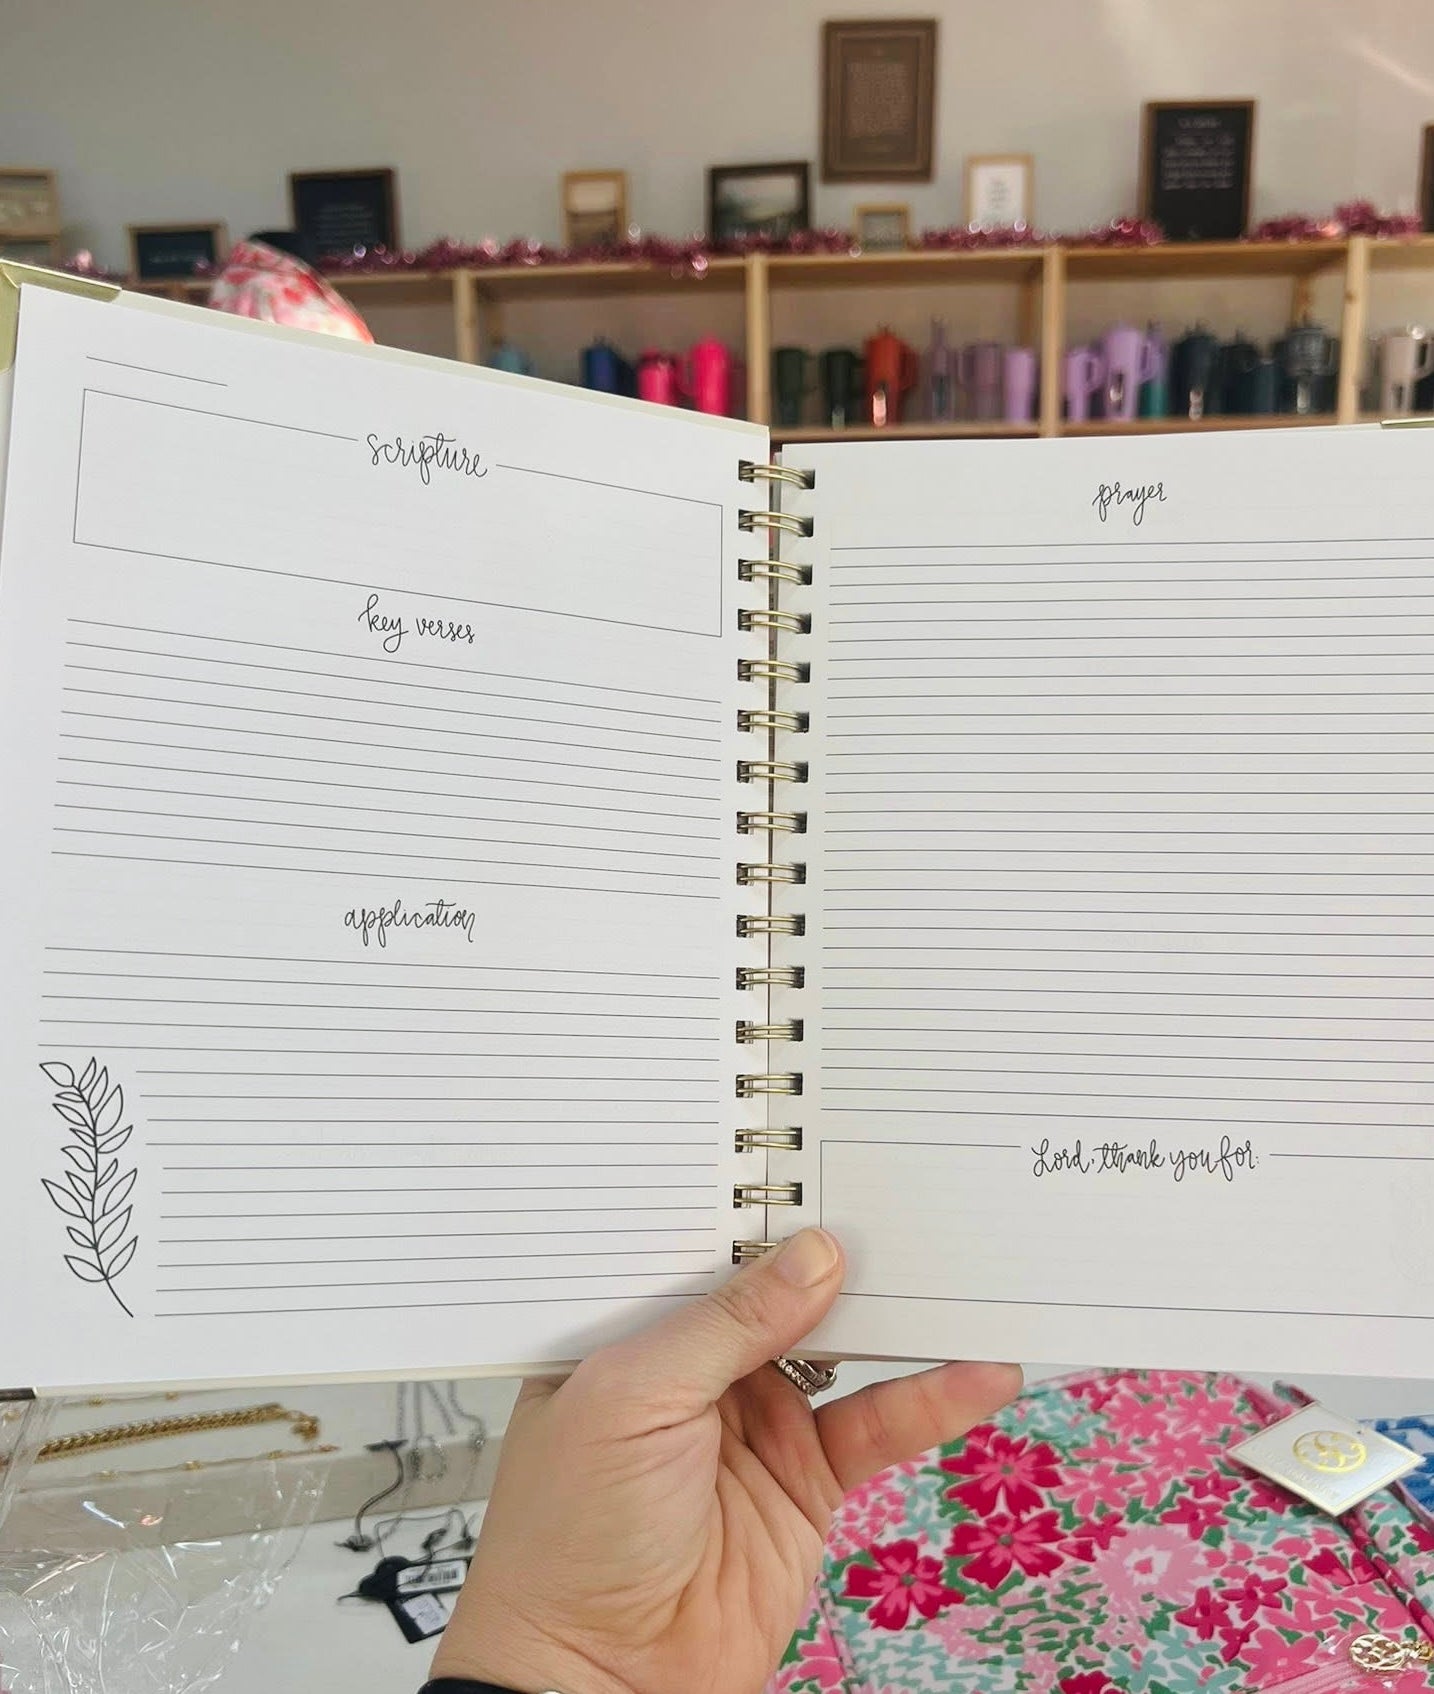 scripture
key verses
application
prayer
Lord, thank you for: